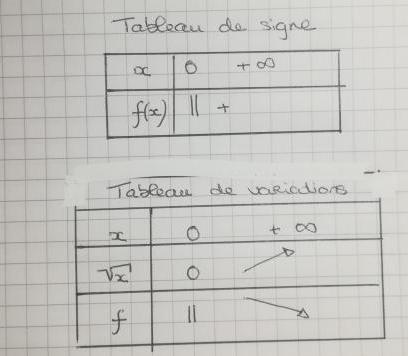 Tableau de signe
x 0 +∞
f(x) || +
Tableau de variations
x 0 + ∞
√x 0 ↗
f || ↘